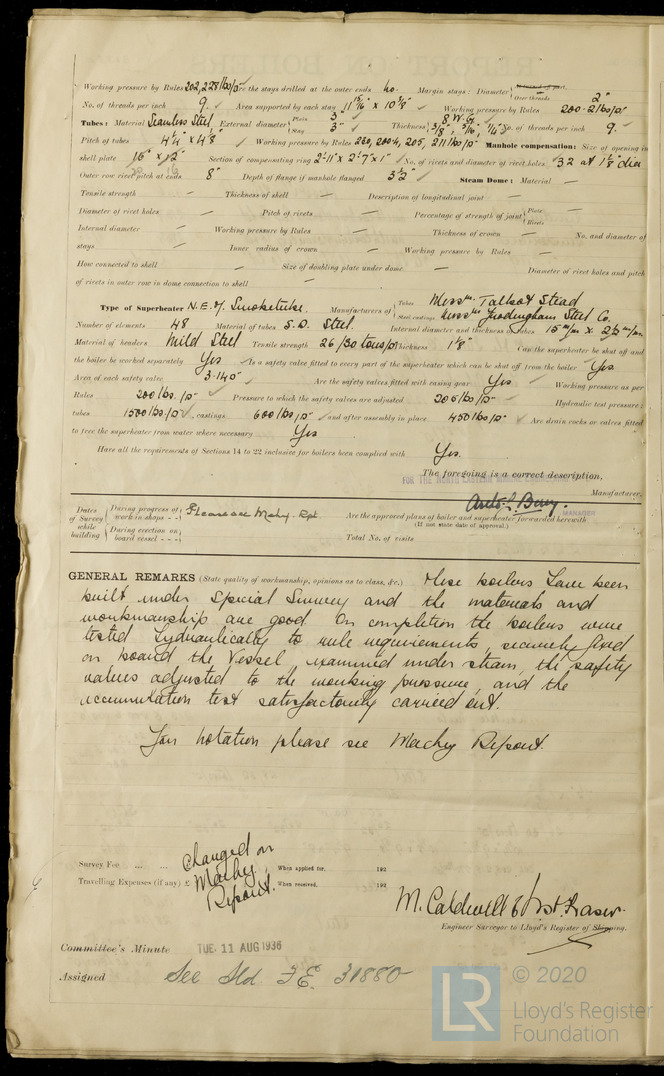 Working pressure by Rules 202, 228 lbs/□" Are the stays drilled at the outer ends No. Margin stays: Diameter { Over threads 2"
No. of threads per inch 9. ✓ Area supported by each stay 11 15/16" × 10 3/8" ✓ Working pressure by Rules 200.2 lbs/□"
Tubes: Material Seamless Steel External diameter { Plain 3" Stay 3" ✓ Thickness { 8 W.G. 3/8", 5/16", 1/4" No. of threads per inch 9. ✓
Pitch of tubes 4 1/4" × 4 1/8" ✓ Working pressure by Rules 280, 200.4, 205, 211 lbs/□" Manhole compensation: Size of opening in
shell plate 16" × 12" Section of compensating ring 2'-11" × 2'-7" × 1" ✓ No. of rivets and diameter of rivet holes 32 at 1 1/8" dia
Outer row rivet pitch at ends 8" Depth of flange if manhole flanged 3 1/2" ✓ Steam Dome: Material —
Tensile strength — Thickness of shell — Description of longitudinal joint —
Diameter of rivet holes — Pitch of rivets — Percentage of strength of joint { Plate — Rivets —
Internal diameter — Working pressure by Rules — Thickness of crown — No. and diameter of
stays — Inner radius of crown — Working pressure by Rules —
How connected to shell — Size of doubling plate under dome — Diameter of rivet holes and pitch
of rivets in outer row in dome connection to shell —
Type of Superheater N.E.M. Smoketube. Manufacturers of { Tubes Messrs. Talbot Stead
Steel castings Messrs Frodingham Steel Co.
Number of elements 48 Material of tubes S.D. Steel. Internal diameter and thickness of tubes 15 m/m × 2½ m/m.
Material of headers Mild Steel Tensile strength 26/30 tons/□" Thickness 1 1/8" Can the superheater be shut off and
the boiler be worked separately Yes ✓ Is a safety valve fitted to every part of the superheater which can be shut off from the boiler Yes. ✓
Area of each safety valve 3.140" ✓ Are the safety valves fitted with easing gear Yes. ✓ Working pressure as per
Rules 200 lbs./□" Pressure to which the safety valves are adjusted 205 lbs/□" ✓ Hydraulic test pressure:
tubes 1500 lbs/□" ✓, castings 600 lbs/□" ✓ and after assembly in place 450 lbs/□" ✓ Are drain cocks or valves fitted
to free the superheater from water where necessary Yes
Have all the requirements of Sections 14 to 22 inclusive for boilers been complied with Yes.
The foregoing is a correct description,
FOR THE NORTH EASTERN MARINE
Manufacturer.
MANAGER
Dates of Survey while building { During progress of work in shops - - } Please see Machy. Rpt Are the approved plans of boiler and superheater forwarded herewith
(If not state date of approval.)
{ During erection on board vessel - - - } Total No. of visits
GENERAL REMARKS (State quality of workmanship, opinions as to class, &c.) These boilers have been
built under Special Survey and the materials and
workmanship are good. On completion the boilers were
tested hydraulically to rule requirements, securely fixed
on board the Vessel, examined under steam, the safety
valves adjusted to the working pressure, and the
accumulation test satisfactorily carried out.
For notation please see Machy Report.
Survey Fee ... ... Charged on When applied for, 192
Travelling Expenses (if any) £ Machy Report. When received, 192
M. Caldwell & Fraser.
Engineer Surveyor to Lloyd's Register of Shipping.
Committee's Minute TUE. 11 AUG 1936
Assigned See Sld F.E. 31880
LR © 2020
Lloyd's Register
Foundation